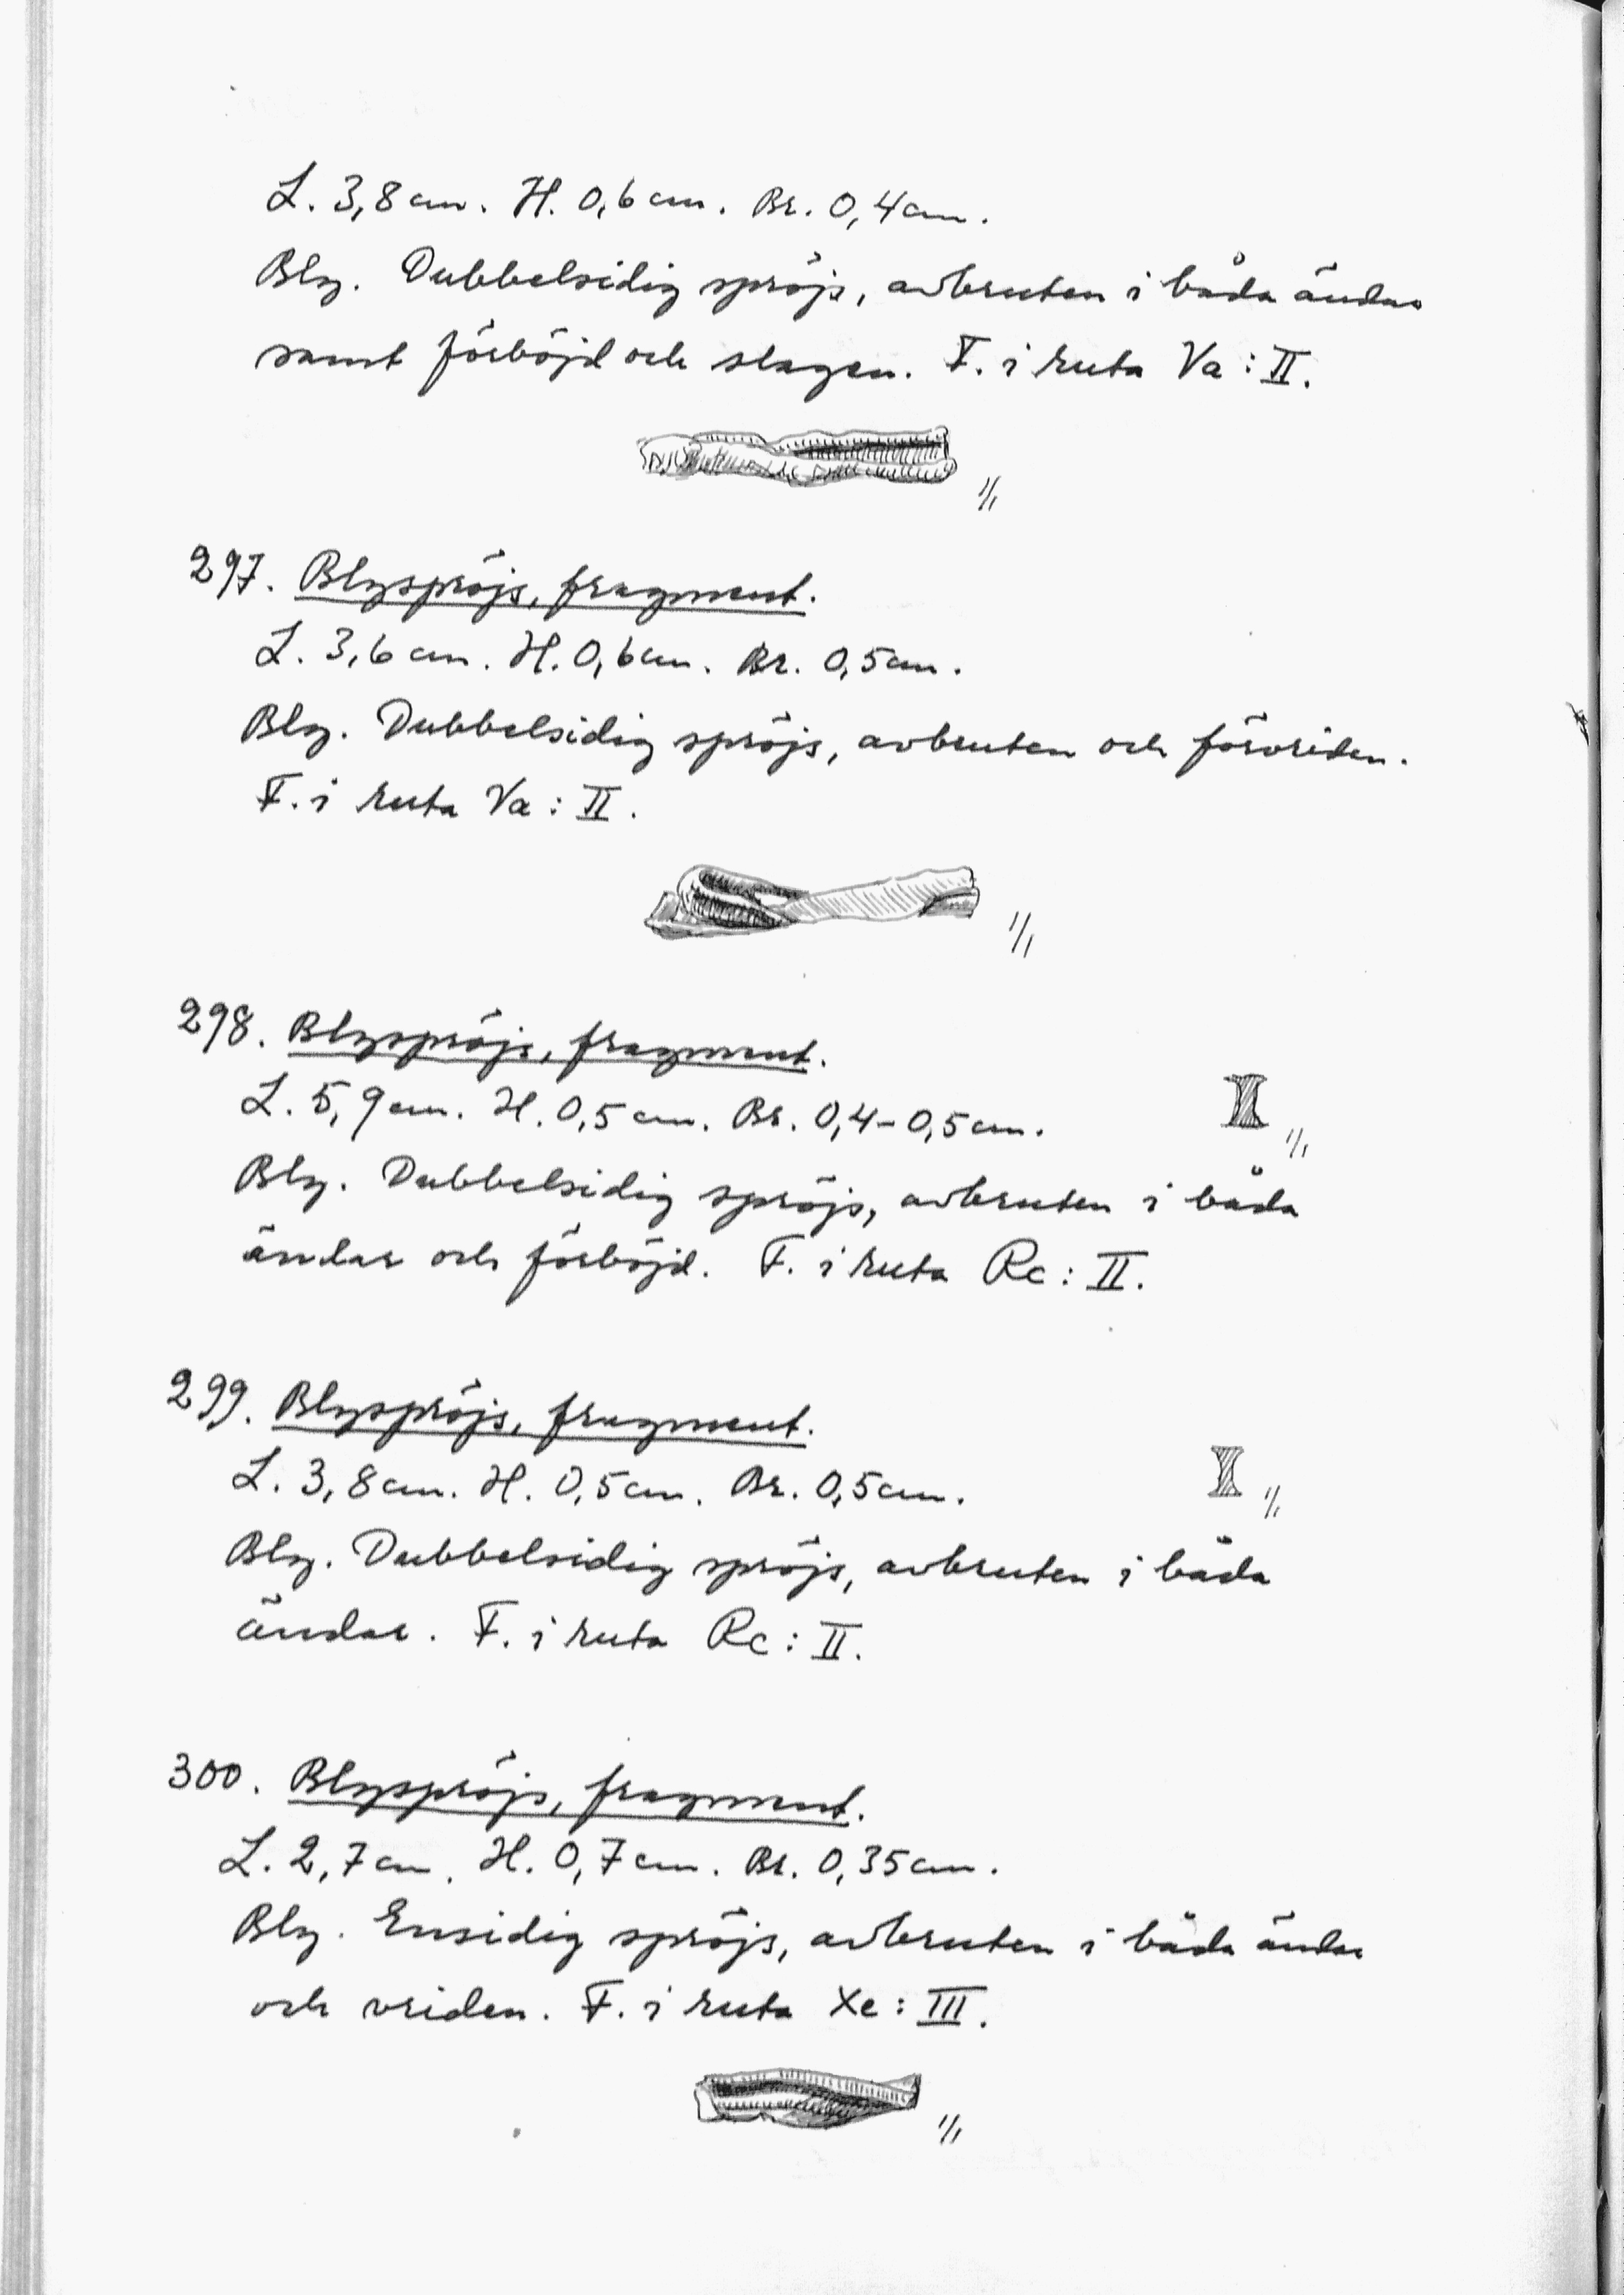 L. 3,8 cm. H. 0,6 cm. Br. 0,4 cm.
Bly. Dubbelsidig spröjs, avbruten i båda ändar
samt förböjd och slagen. F. i ruta Va : II.
1/1
297. Blyspröjs, fragment.
L. 3,6 cm. H. 0,6 cm. Br. 0,5 cm.
Bly. Dubbelsidig spröjs, avbruten och förvriden.
F. i ruta Va : II.
1/1
298. Blyspröjs, fragment.
L. 5,9 cm. H. 0,5 cm. Br. 0,4-0,5 cm.
1/1
Bly. Dubbelsidig spröjs, avbruten i båda
ändar och förböjd. F. i ruta Rc : II.
299. Blyspröjs, fragment.
L. 3,8 cm. H. 0,5 cm. Br. 0,5 cm.
1/1
Bly. Dubbelsidig spröjs, avbruten i båda
ändar. F. i ruta Rc : II.
300. Blyspröjs, fragment.
L. 2,7 cm. H. 0,7 cm. Br. 0,35 cm.
Bly. Ensidig spröjs, avbruten i båda ändar
och vriden. F. i ruta Xe : III.
1/1